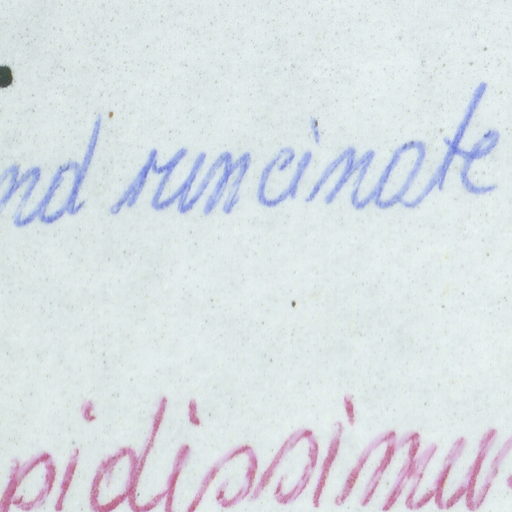 nd runcinate
pidissimus